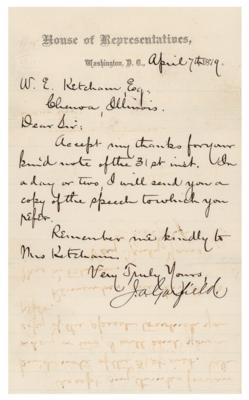 House of Representatives,
Washington, D. C., April 7th 1879.
W. E. Ketcham Esq.,
Chenoa, Illinois.
Dear Sir:
Accept my thanks for your
kind note of the 31st inst. In
a day or two, I will send you a
copy of the speech to which you
refer.
Remember me kindly to
Mrs Ketcham.
Very Truly Yours,
J. A. Garfield.